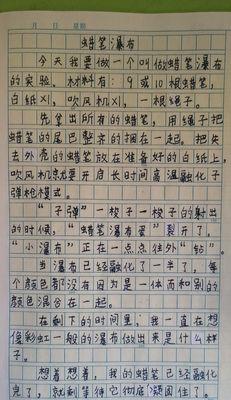 月 日 星期
蜡笔瀑布
今天我要做一个叫做蜡笔瀑布
的实验。材料有：9或10根蜡笔，
白纸X1，吹风机X1，一根绳子。
先拿出所有的蜡笔，用绳子把
蜡笔的尾巴整齐的捆在一起。把失
去外壳的蜡笔放在准备好的白纸上，
吹风机就要开启长时间高温融化子
弹枪模式。
“子弹”一梭子一梭子的射出
的时候，“蜡笔瀑布蛋”裂开了，
“小瀑布”正在一点点往外“钻”。
当瀑布已经融化了一半了，每
个颜色都没有因为是一体而和别的
颜色混合在一起。
在剩下的时间里，我一直在想
像彩虹一般的瀑布做出来是什么样
子。
想着想着，我的蜡笔已经融化
完了，就剩等待它彻底凝固住了。